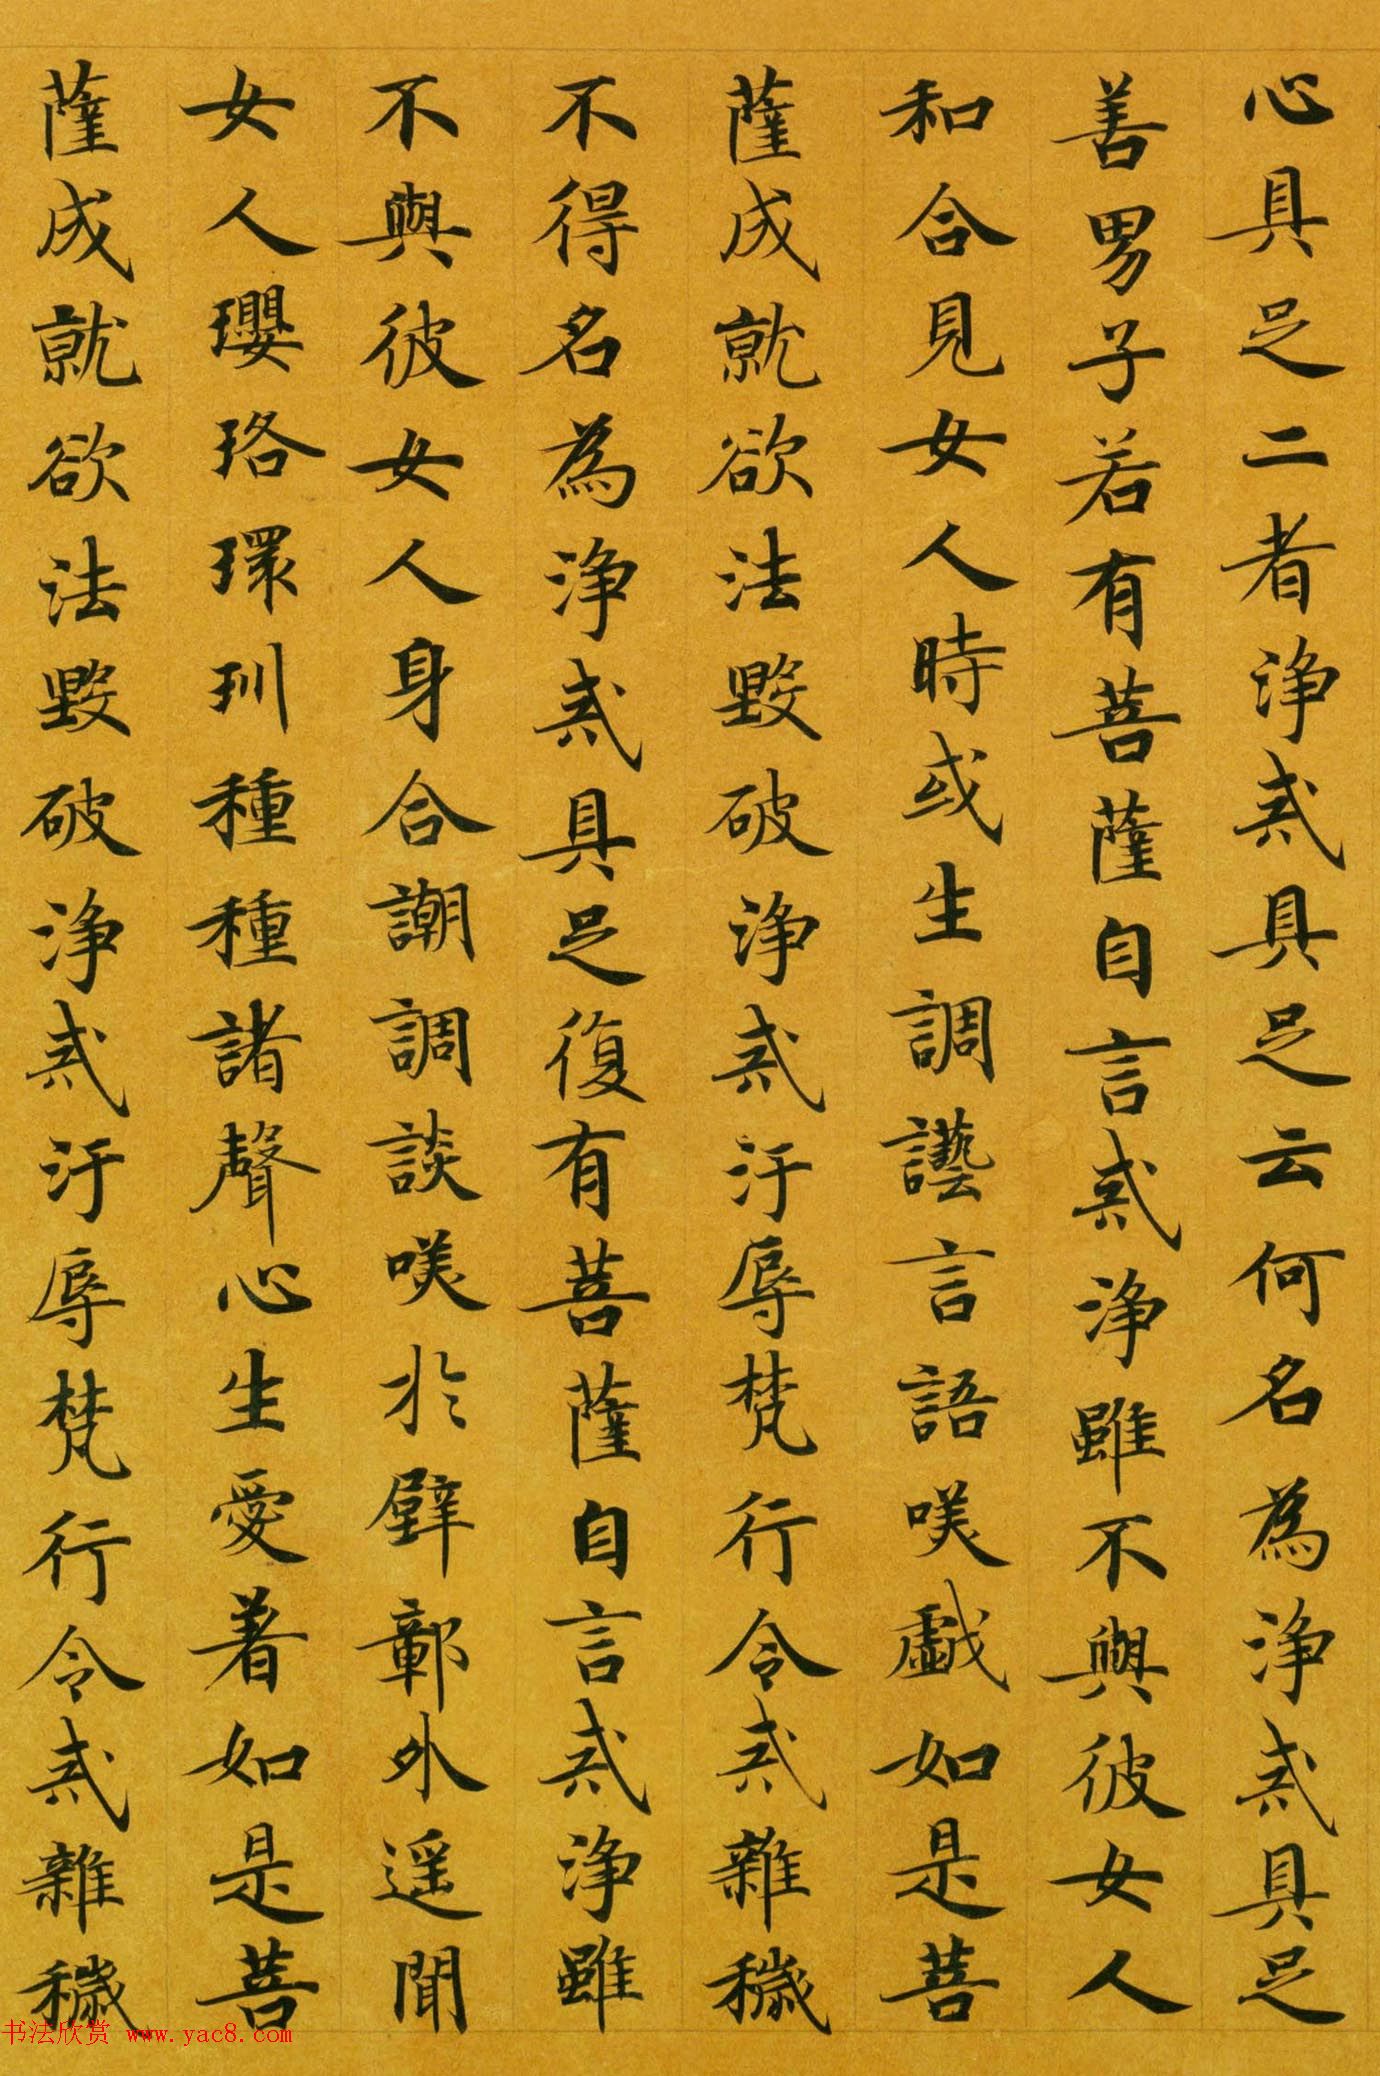 心具足二者淨戒具足云何名為淨戒具足
善男子若有菩薩自言戒淨雖不與彼女人
和合見女人時或生調讛言語咲戲如是菩
薩成就欲法毀破淨戒汙辱梵行令戒雜穢
不得名為淨戒具足復有菩薩自言戒淨雖
不與彼女人身合謿調談咲於壁鄣外遥聞
女人瓔珞環玔種種諸聲心生愛着如是菩
薩成就欲法毀破淨戒汙辱梵行令戒雜穢
书法欣赏 www.yac8.com